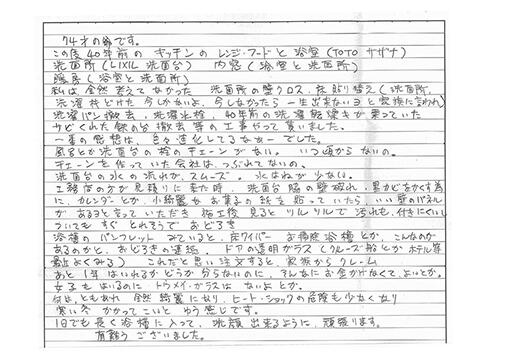 74才の爺です。
この度40年前のキッチンのレンジ・フードと浴室(TOTO サザナ)
洗面所(LIXIL 洗面台) 内窓(浴室と洗面所)
暖房(浴室と洗面所)
私は全然考えてなかった 洗面所の壁クロス、床貼り替え(洗面所、
洗濯丼どけた今しかないよ、今しなかったら一生出来ないヨと家族に言われ)
洗濯パン撤去、洗濯水栓、40年前の洗濯乾燥キが乗っていた
サビくれた鉄の台撤去等の工事やって貰いました。
一番の感想は、色々進化してるなあーでした。
風呂とか洗面台の栓のチェーンがない。いつ頃からないの。
チェーンを作っていた会社は、つぶれてないの。
洗面台の水の流れが、スムーズ。水はねが少ない。
工務店の方が見積りに来た時、洗面台脇の壁破れ、黒カビをかくす為
に、カレンダーとか、小綺麗なお菓子の紙を貼っていたら、いい壁のパネル
があるヨと言っていただき 施工後見るとツルツルで汚れも付きにくいし
ついてもすぐとれそうで おどろき
浴槽のパンフレットみていると、床ワイパー お掃除浴槽とか、こんなのが
あるのかと、おどろきの連続 ドアの透明ガラス(クルーズ船とかホテル等
最近よくみる) これだと思い注文すると、家族からクレーム
あと1年はいれるかどうか分らないのに、そんなにお金かけなくてよいとか。
女子もはいるのに トウメイ・ガラスはないよとか。
何は、ともあれ 全然綺麗になり、ヒート・ショックの危険も少くなり
寒い冬 かかってこいとゆう感じです。
1日でも長く浴槽に入って、洗顔出来るように、頑張ります。
有難うございました。